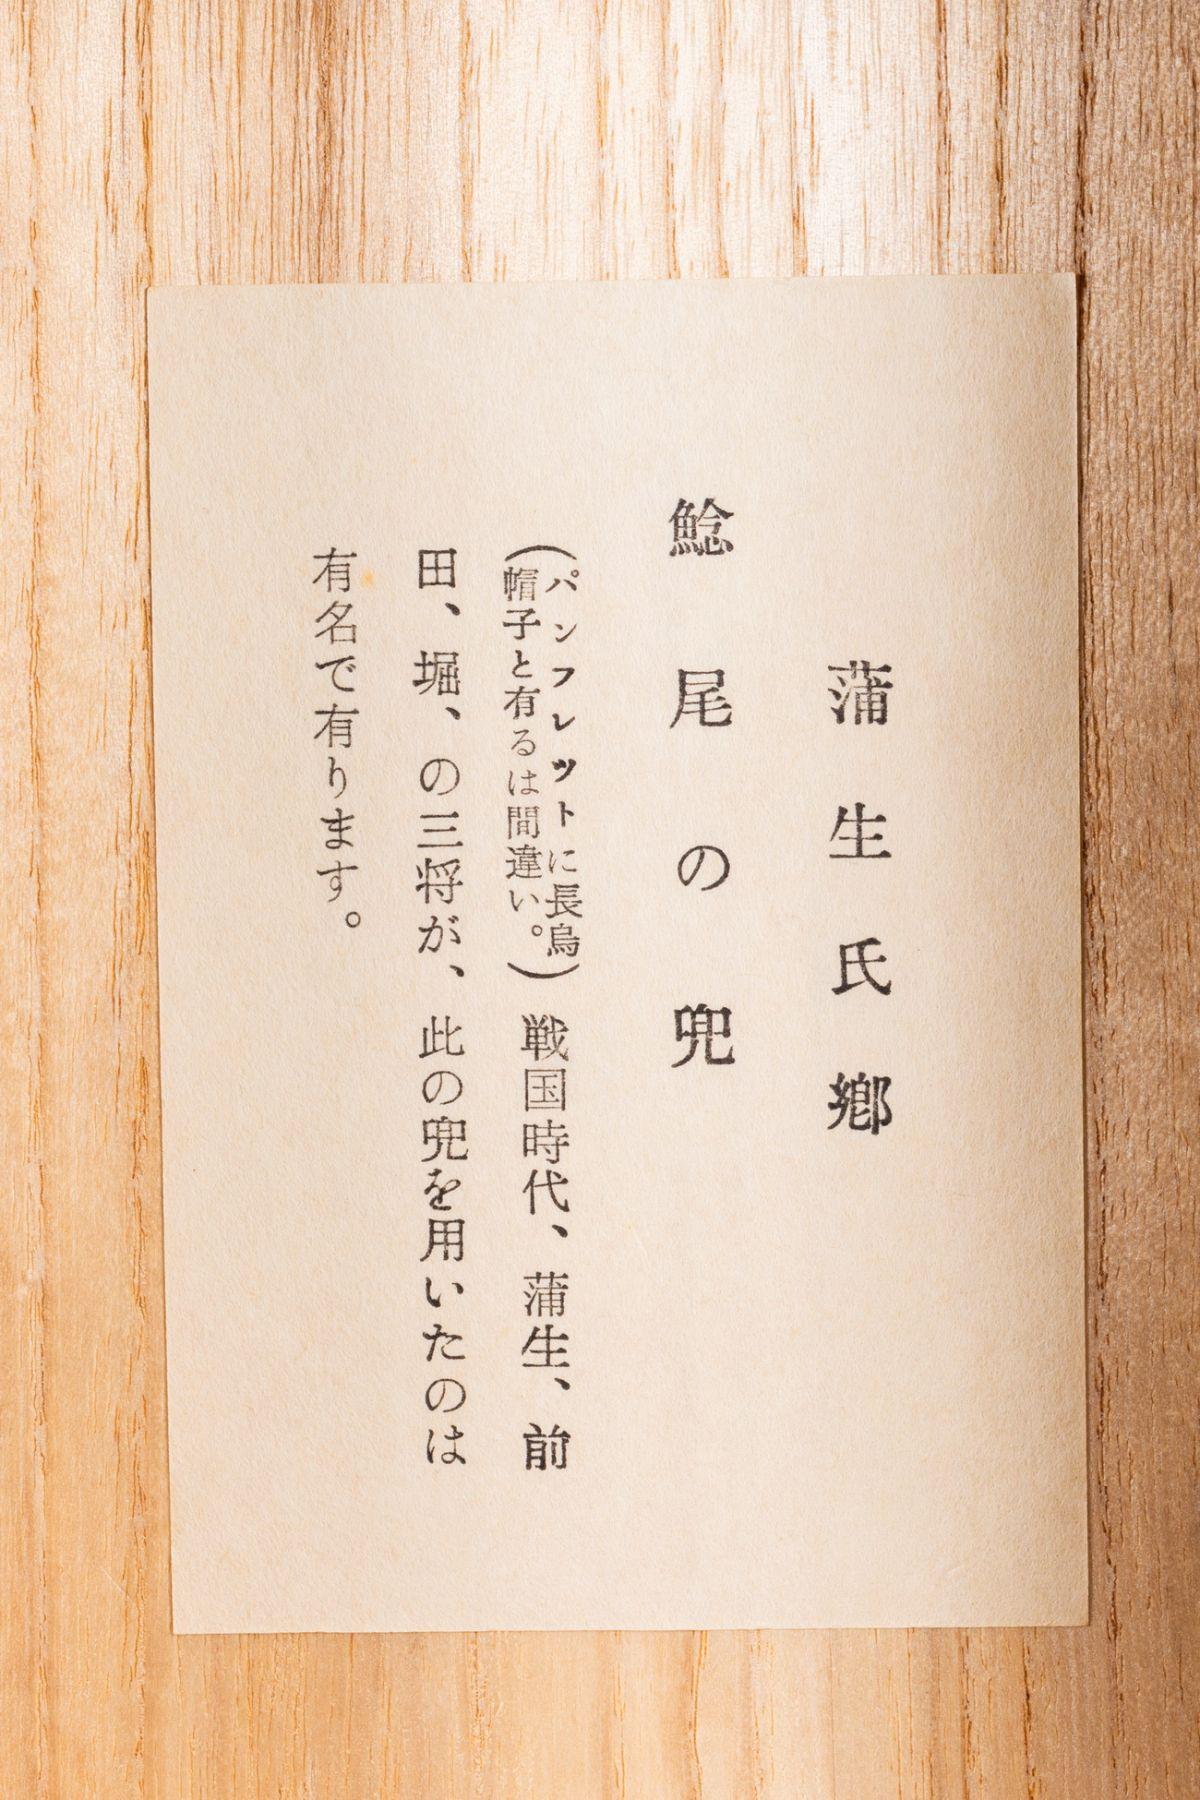 蒲生氏鄕
鯰尾の兜
(パンフレットに長烏
帽子と有るは間違い。)戦国時代、蒲生、前
田、堀、の三将が、此の兜を用いたのは
有名で有ります。